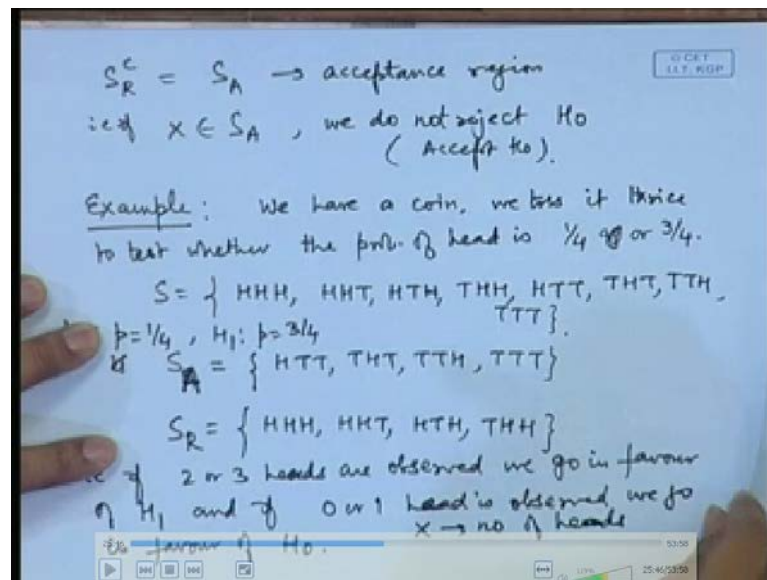 S_R^c = S_A → acceptance region
© CET
I.I.T. KGP
i.e. if x ∈ S_A , we do not reject Ho
( Accept Ho ).
Example : We have a coin. we toss it thrice
to test whether the prob. of head is 1/4 or 3/4.
S = { HHH, HHT, HTH, THH, HTT, THT, TTH,
TTT }.
p = 1/4 , H₁ : p = 3/4
S_A = { HTT, THT, TTH, TTT }
S_R = { HHH, HHT, HTH, THH }
if 2 or 3 heads are observed we go in favour
of H₁ and if 0 or 1 head is observed, we go
x → no of heads
favour of Ho .
53:58
25:46/53:58